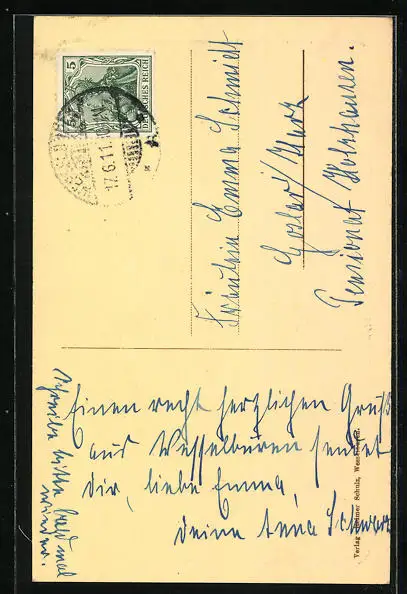 5
DEUTSCHES REICH
17.6.11.
Fräulein Emma Schmidt
Goslar/Harz
Pensionat Holzhausen.
Einen recht herzlichen Gruß
aus Wesselburen sendet
Dir, liebe Emma,
Deine Anna Schwarz
Schreibe bitte bald mal
wieder.
Verlag Schulz, Wesselburen.